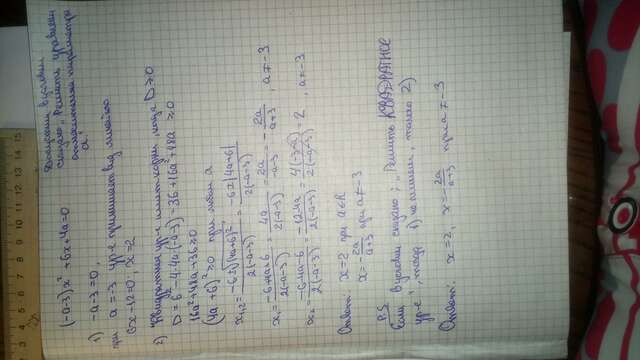 Допустим в условии
сказано: "Решить уравнение
относительно параметра
a"
(-a-3)x² + 6x + 4a = 0
1) -a-3=0
при a=-3 ур-е принимает вид линейного
6x-12=0, x=2
2) Квадратное ур-е имеет корни, когда D≥0
D = 6² - 4·4a·(-a-3) = 36+16a²+48a ≥0
16a²+48a+36≥0
(4a+6)² ≥0 при любом a
x₁,₂ = (-6±√(4a+6)²)/(2(-a-3)) = (-6±|4a+6|)/(2(-a-3))
x₁ = (-6+4a+6)/(2(-a-3)) = 4a/(2(-a-3)) = 2a/(-a-3) = -2a/(a+3), a≠-3
x₂ = (-6-4a-6)/(2(-a-3)) = (-12-4a)/(2(-a-3)) = 4(-3-a)/(2(-a-3)) = 2, a≠-3
Ответ: x=2 при a∈R
x = -2a/(a+3) при a≠-3
P.S
Если в условии сказано: "Решить КВАДРАТНОЕ
ур-е", тогда 1) не пишем, только 2)
Ответ: x=2, x=-2a/(a+3) при a≠-3
15 14 13 12 11 10